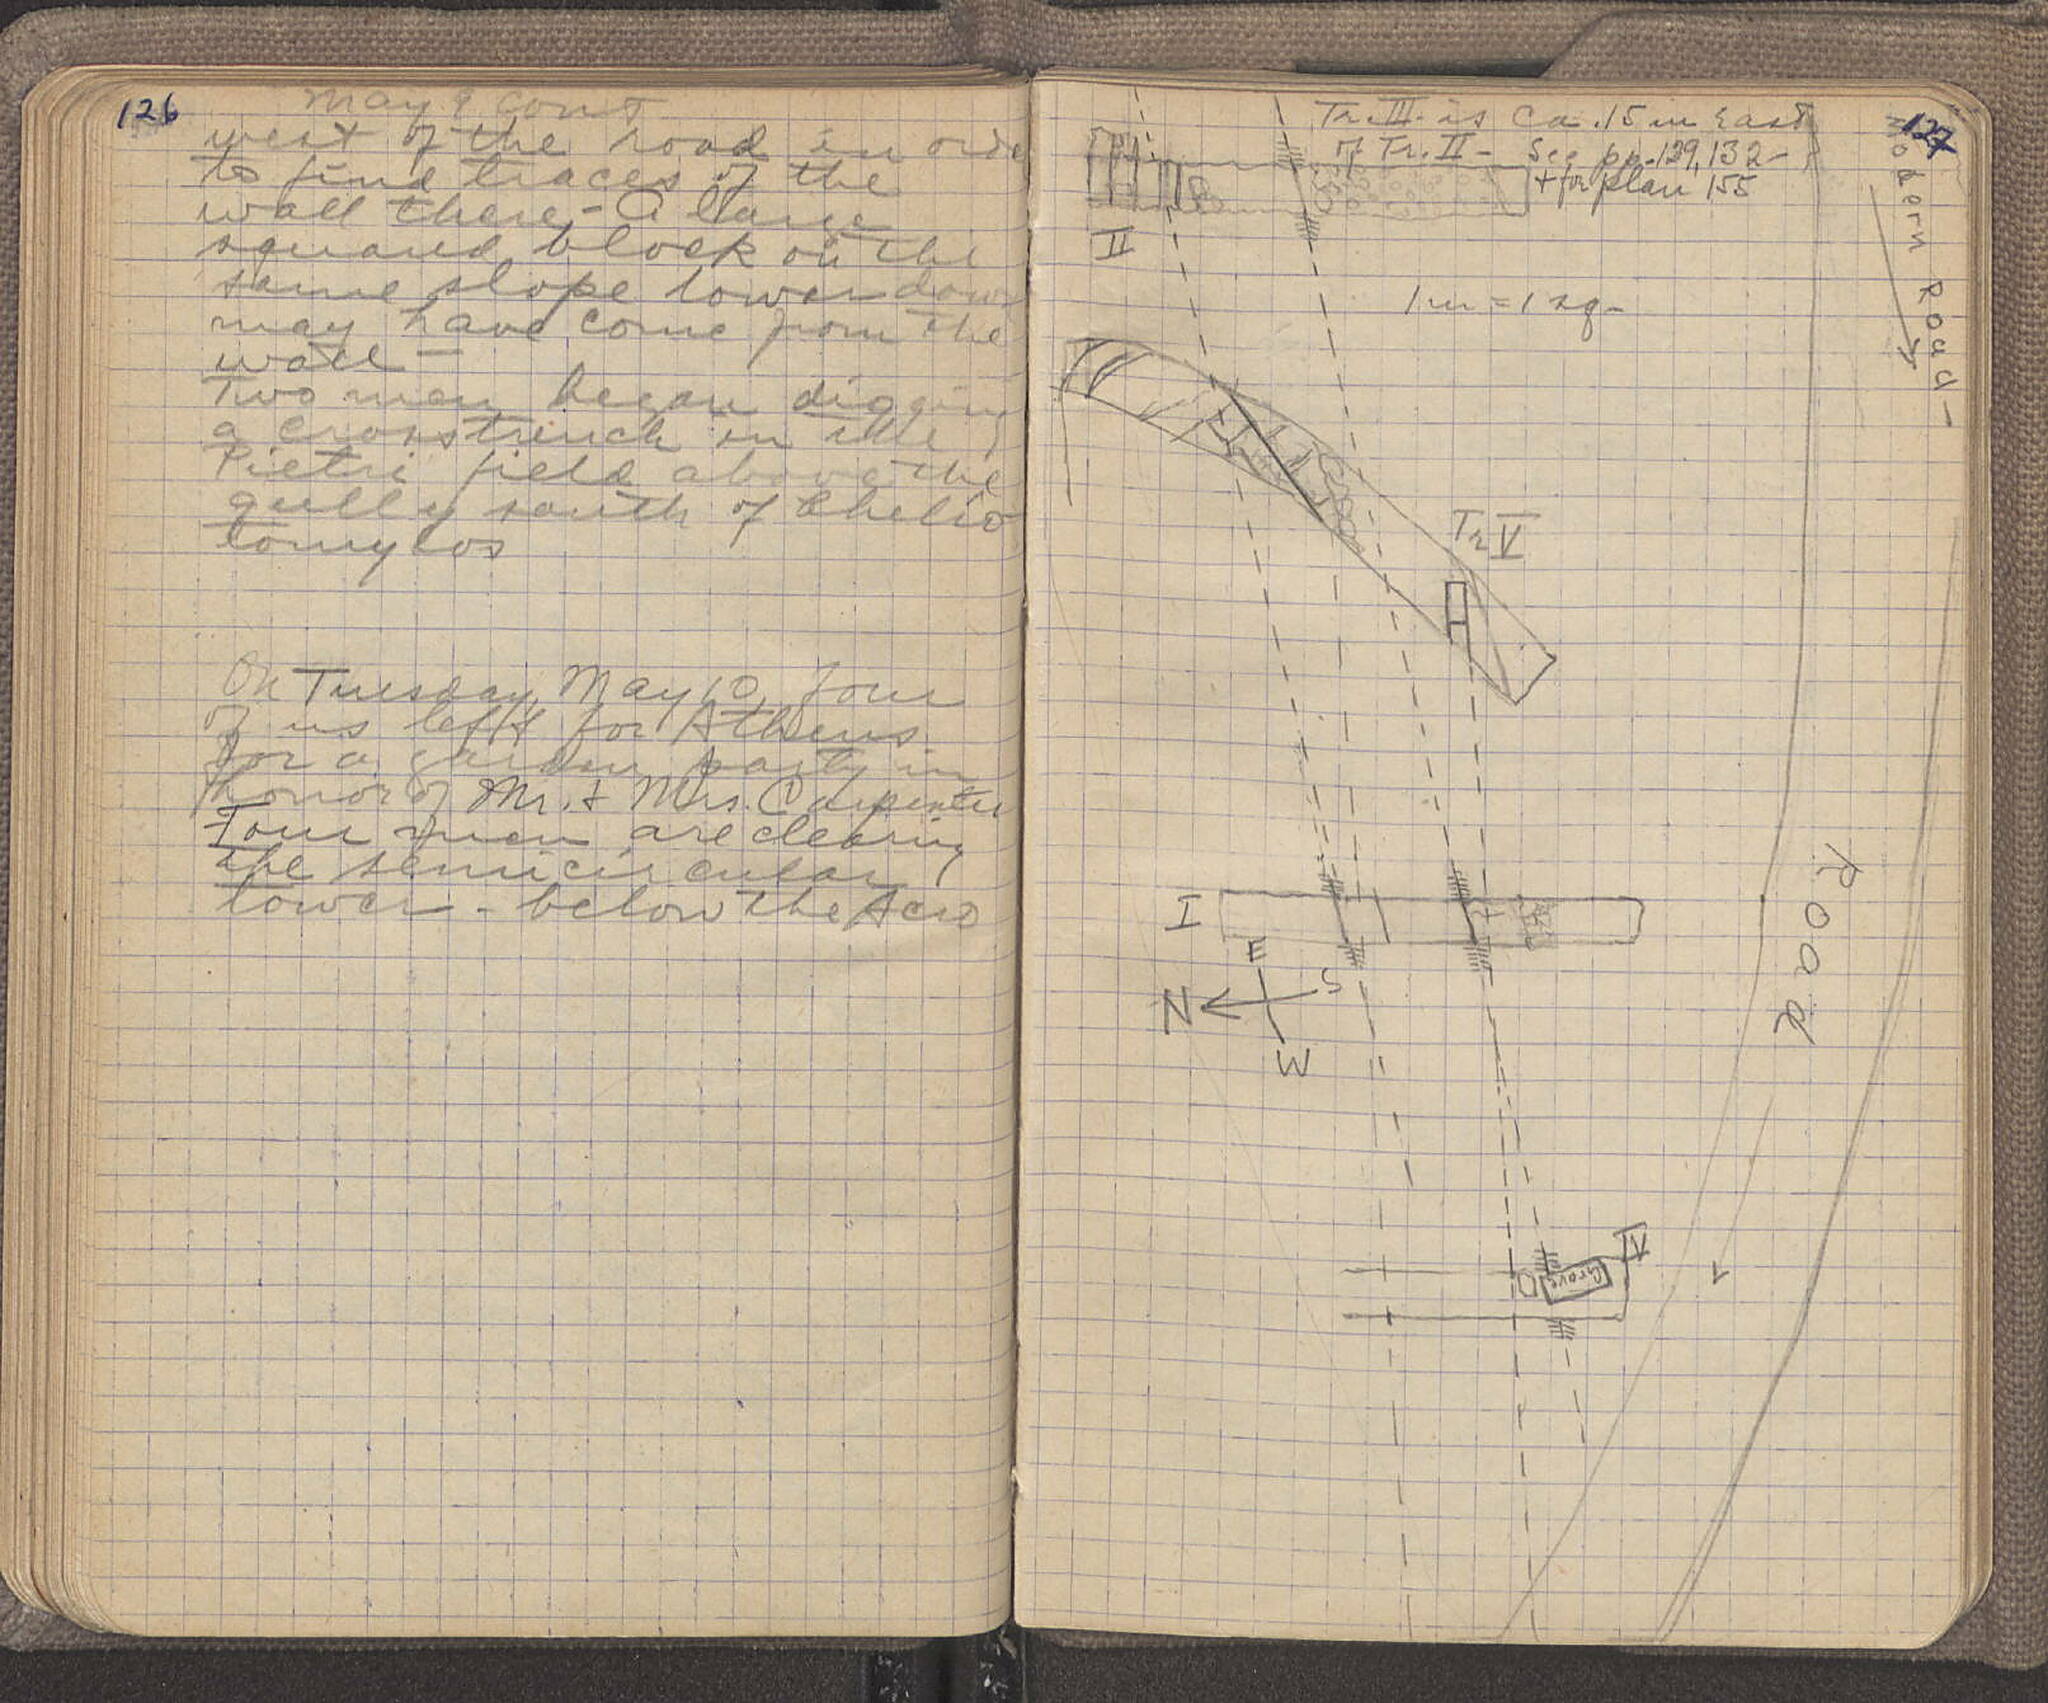 126
May 9 cont
west of the road in orde
to find traces of the
wall there - A large
squared block on the
same slope lower down
may have come from the
wall -
Two men began digging
a crosstrench in the
Pietri field above the
gully south of Chelio
tomylos
On Tuesday, May 10, four
of us left for Athens
for a garden party in
honor of Mr. & Mrs. Carpenter
Four men are clearing
the semicircular
tower - below the Acro
127
Tr. III is Ca. 15 m East
of Tr. II - See pp. 129, 132 -
+ for plan 155
Modern Road -
II
1 m = 1 sq -
Tr V
Road
I
E
N
S
W
IV
Grave